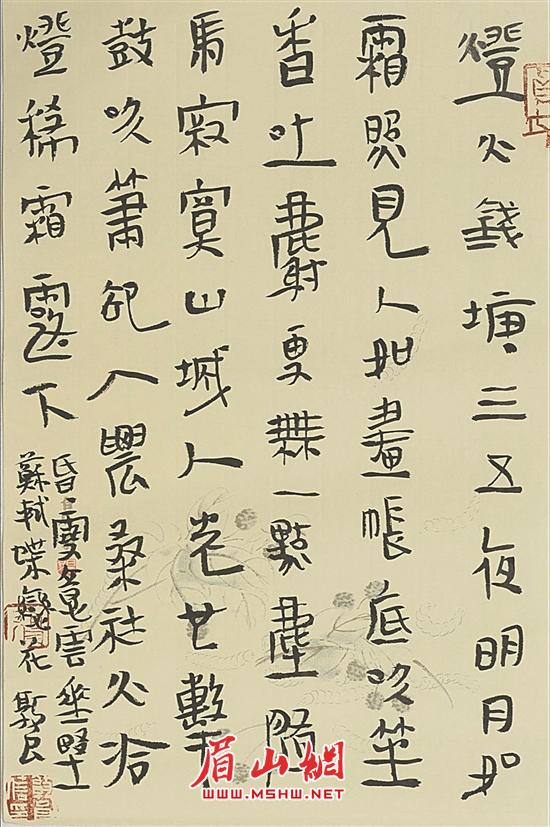 燈火錢塘三五夜明月如
霜照見人如畫帳底吹笙
香吐麝更無一點塵隨
馬寂寞山城人老也擊
鼓吹簫卻入農桑社火冷
燈稀霜露下
昏〻雪意雲垂野
蘇軾蝶戀花
眉山網
WWW.MSHW.NET